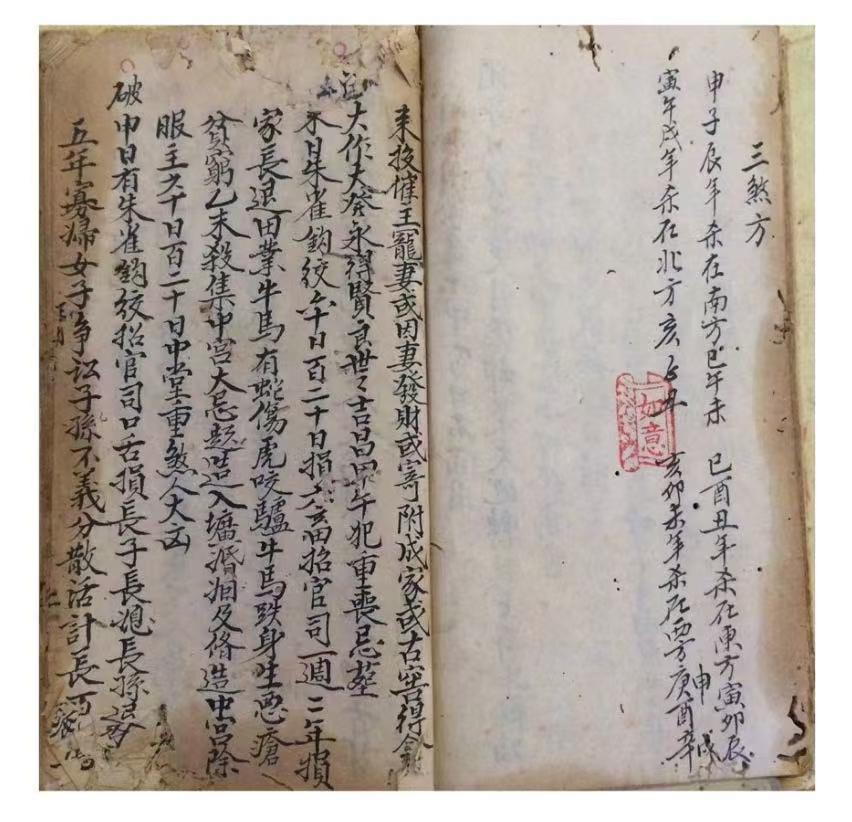 三煞方
申子辰年杀在南方巳午未 巳酉丑年杀在東方寅卯辰
寅午戌年杀在北方亥子丑 亥卯未年杀在西方庚酉辛
申戌
如意
来投催王寵妻或因妻發財或寄附成家或古窖得金
定大作大發永得賢良世々吉昌甲午犯重喪忌葬
未日朱雀鈎绞六十日百二十日損六畜招官司一週二年損
家長退田業牛馬有蛇傷虎咬驢牛馬跌身生悪瘡
貧窮乙未殺集中宮大忌起造入壙婚姻及脩造中宮除
服主六十日百二十日中堂重煞人大凶
破申日有朱雀鈎绞招官司口舌損長子長媳長孫退
五年寡婦女子争訟子孫不義分散活計長